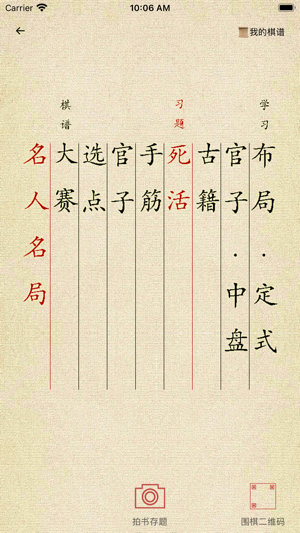 Carrier 10:06 AM
我的棋谱
学习
布局·定式
官子·中盘
古籍
习题
死活
手筋
官子
选点
棋谱
大赛
名人名局
拍书存题
围棋二维码